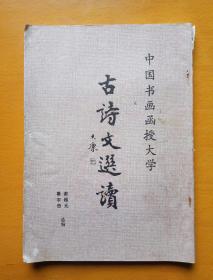 中国书画函授大学
古詩文選讀
大康
选编